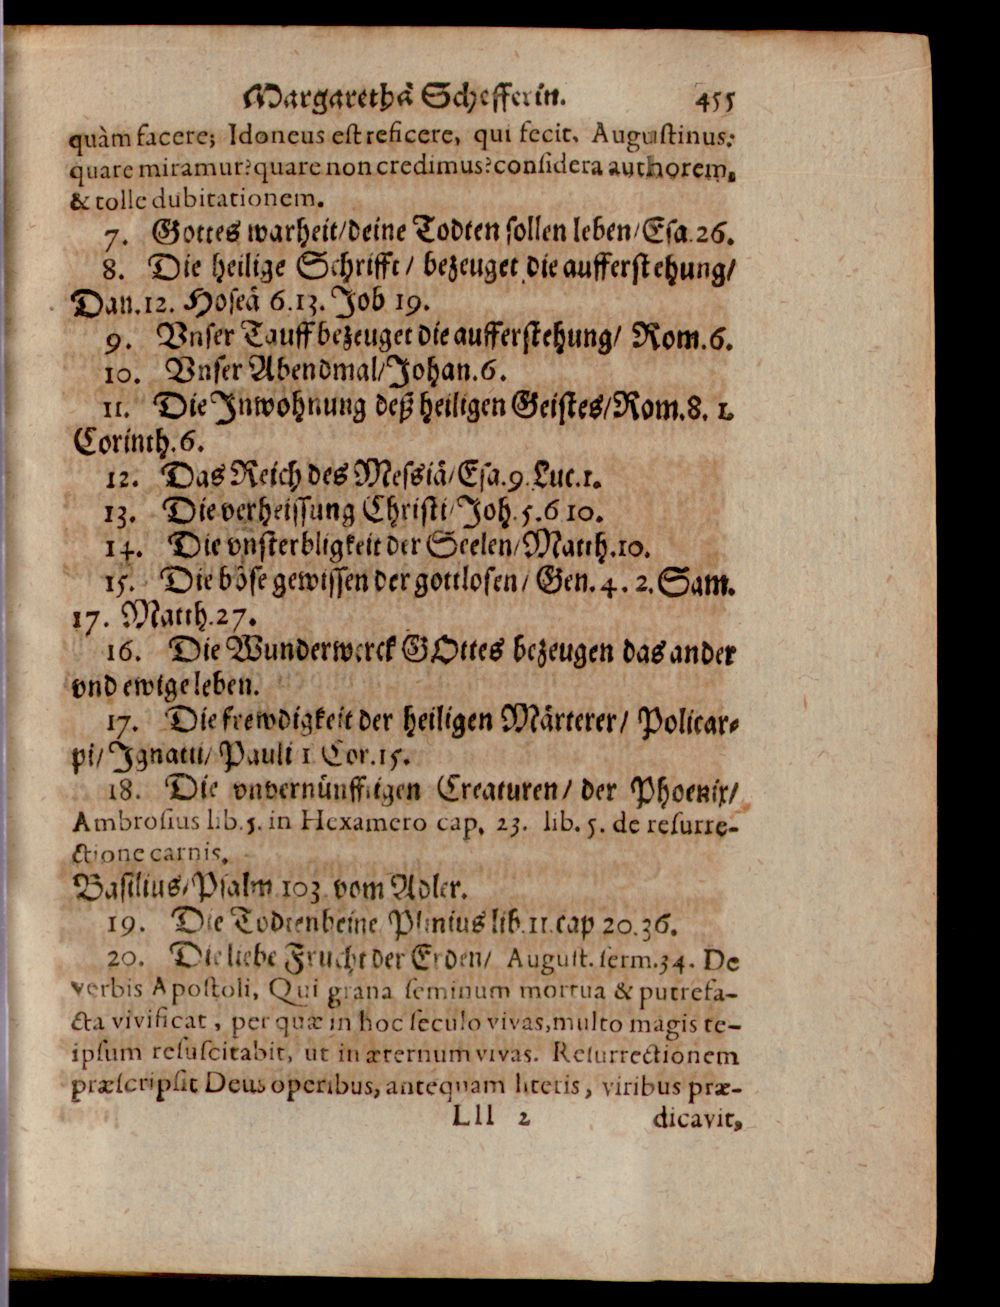 Margarethâ Schefferin. 455
quàm facere; Idoneus est reficere, qui fecit. Augustinus:
quare miramur? quare non credimus? considera authorem,
& tolle dubitationem.
7. Gottes warheit/deine Todten sollen leben/Esa.26.
8. Die heilige Schrifft/ bezeuget die aufferstehung/
Dan.12. Hoseâ 6.13. Job 19.
9. Vnser Tauff bezeuget die aufferstehung/ Rom.6.
10. Vnser Abendmal/Johan.6.
11. Die Inwohnung deß heiligen Geistes/Rom.8. 1.
Corinth.6.
12. Das Reich des Messiâ/Esa.9.Luc.1.
13. Die verheissung Christi/Joh.5.6 10.
14. Die vnsterbligkeit der Seelen/Matth.10.
15. Die böse gewissen der gottlosen/ Gen.4.2.Sam.
17. Matth.27.
16. Die Wunderwerck GOttes bezeugen das ander
vnd ewige leben.
17. Die frewdigkeit der heiligen Märterer/ Policar-
pi/Ignatii/Pauli 1 Cor.15.
18. Die vnvernünfftigen Creaturen/ der Phoenix/
Ambrosius lib.5. in Hexamero cap. 23. lib. 5. de resurre-
ctione carnis.
Basilius/Psalm 103 vom Adler.
19. Die Todtenbeine Plinius lib.11.cap 20.36.
20. Die liebe Frucht der Erden/ August. serm.34. De
verbis Apostoli, Qui grana seminum mortua & putrefa-
cta vivificat, per quæ in hoc seculo vivas, multo magis te-
ipsum resuscitabit, ut in æternum vivas. Resurrectionem
præscripsit Deus operibus, antequam literis, viribus præ-
Lll 2 dicavit,